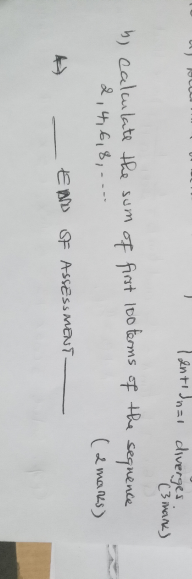 (2n+1)n=1 diverges.
(3 mark)
b) calculate the sum of first 100 terms of the sequence
2, 4, 6, 8, ....
(2 marks)
END OF ASSESSMENT